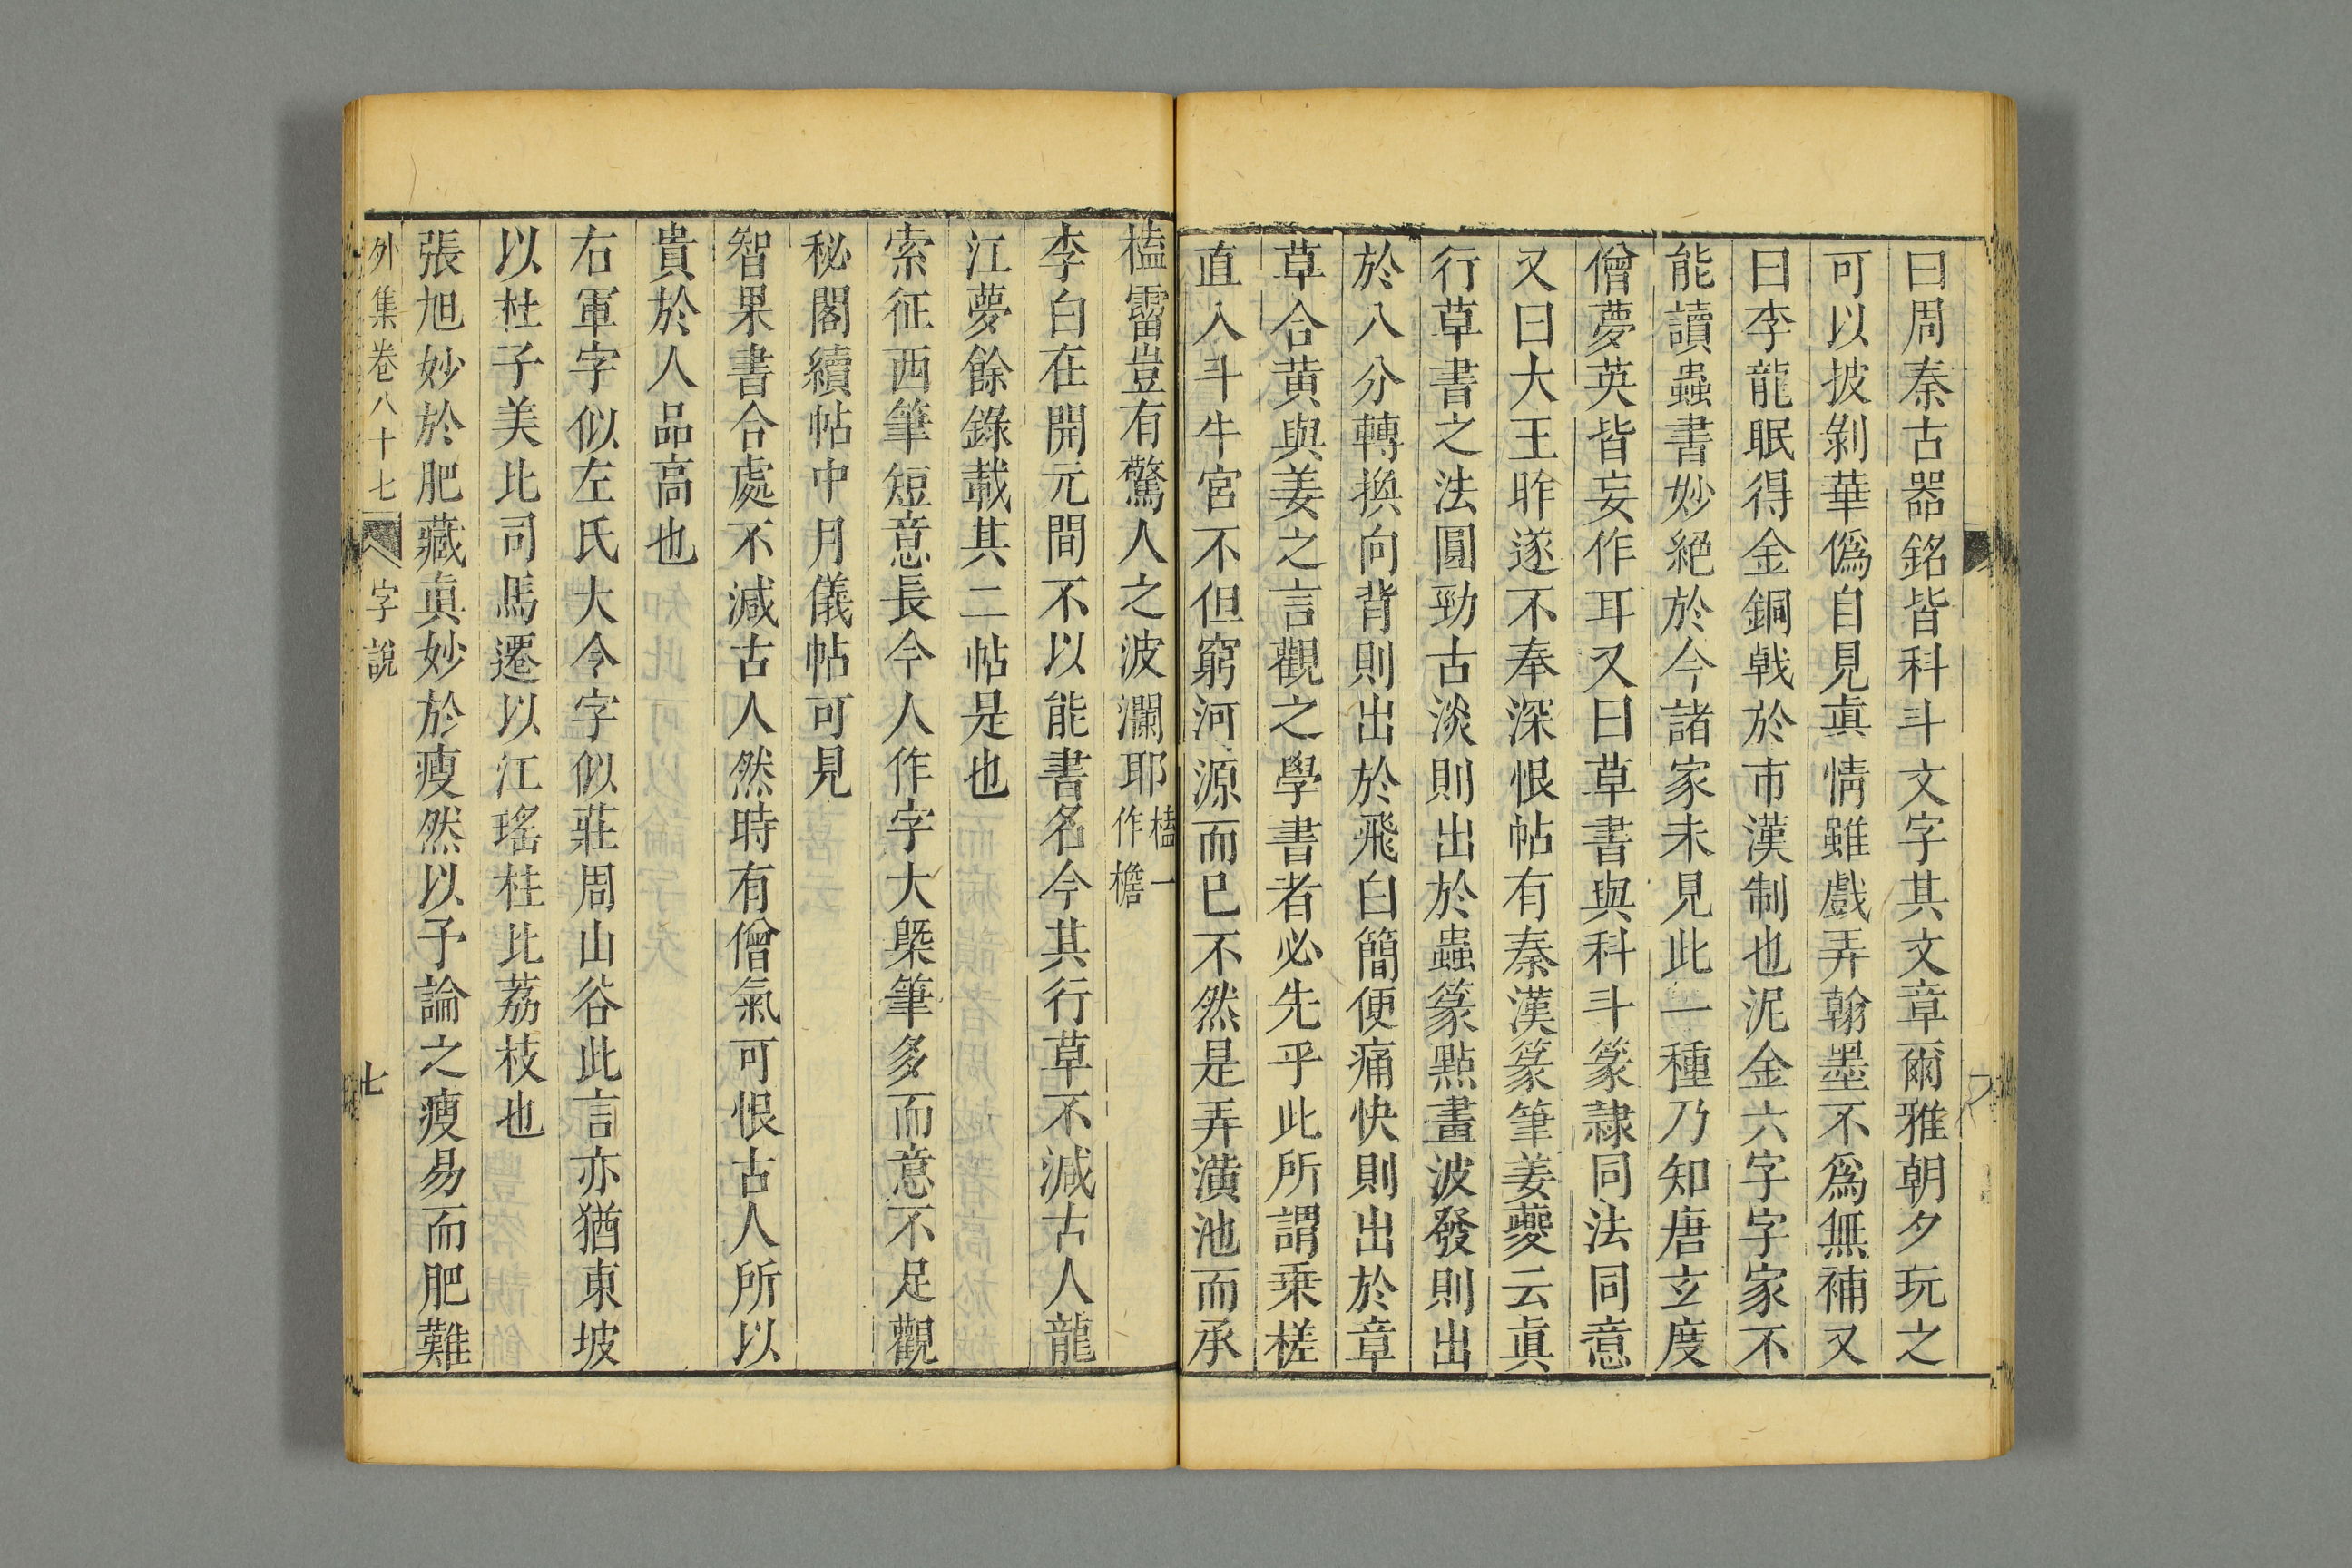 曰周秦古器銘皆科斗文字其文章爾雅朝夕玩之
可以披剝華僞自見眞情雖戲弄翰墨不爲無補又
曰李龍眠得金銅戟於市漢制也泥金六字字家不
能讀蟲書妙絕於今諸家未見此一種乃知唐玄度
僧夢英皆妄作耳又曰草書與科斗篆隷同法同意
又曰大王昨遂不奉深恨帖有秦漢篆筆姜夔云眞
行草書之法圓勁古淡則出於蟲篆點畫波發則出
於八分轉換向背則出於飛白簡便痛快則出於章
草合黄與姜之言觀之學書者必先乎此所謂乗槎
直入斗牛宮不但窮河源而已不然是弄潢池而承
榼霤豈有驚人之波瀾耶榼一作檐
李白在開元間不以能書名今其行草不減古人龍
江夢餘錄載其二帖是也
索征西筆短意長今人作字大槩筆多而意不足觀
秘閣續帖中月儀帖可見
智果書合處不減古人然時有僧氣可恨古人所以
貴於人品高也
右軍字似左氏大令字似莊周山谷此言亦猶東坡
以杜子美比司馬遷以江瑤柱比荔枝也
張旭妙於肥藏眞妙於瘦然以予論之瘦易而肥難
外集卷八十七 字說 七